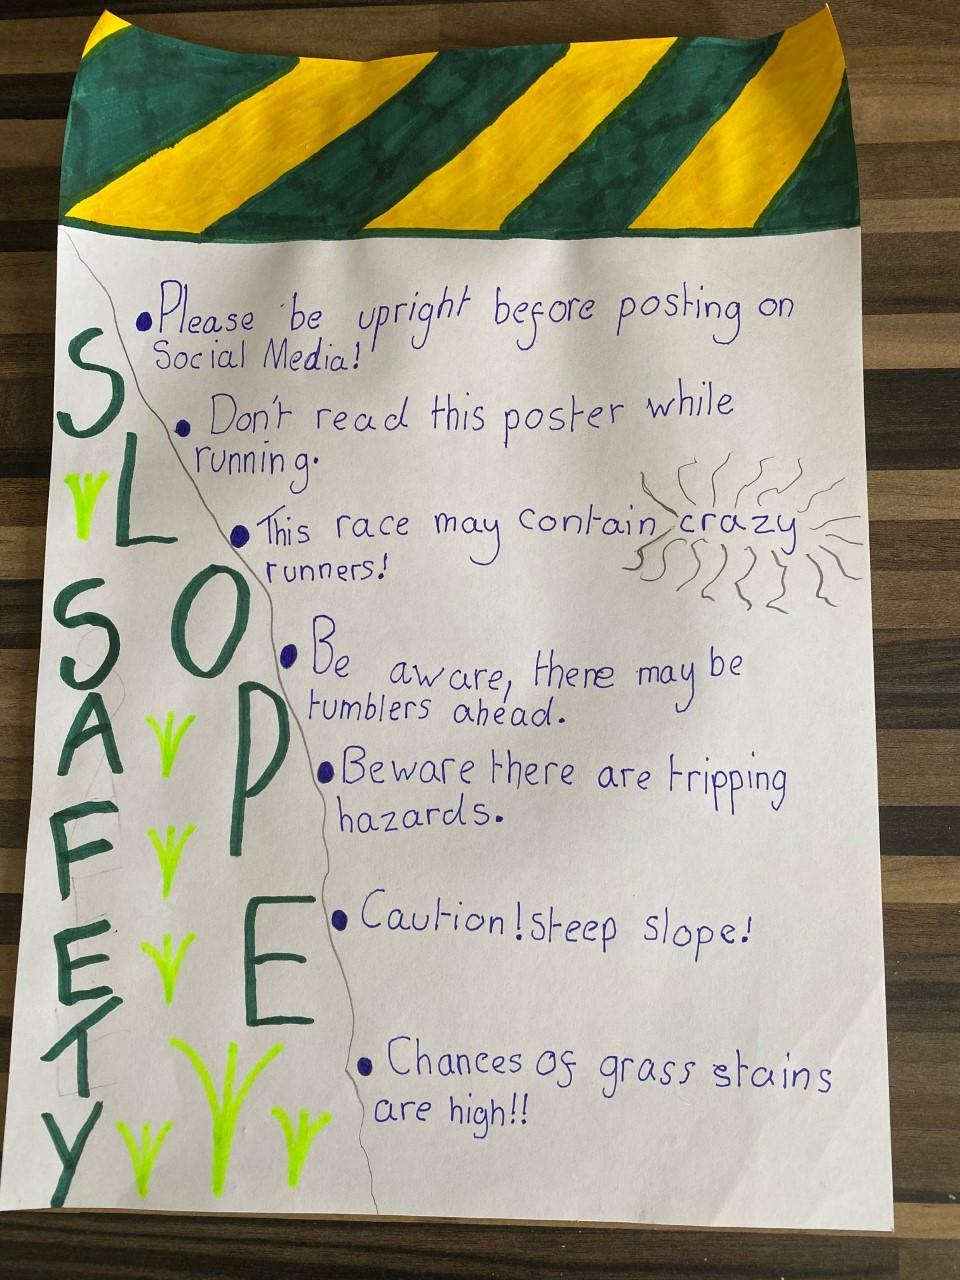 SLOPE
SAFETY
•Please be upright before posting on
Social Media!
• Don't read this poster while
running.
•This race may contain crazy
runners!
•Be aware, there may be
tumblers ahead.
•Beware there are tripping
hazards.
• Caution! steep slope!
• Chances of grass stains
are high!!